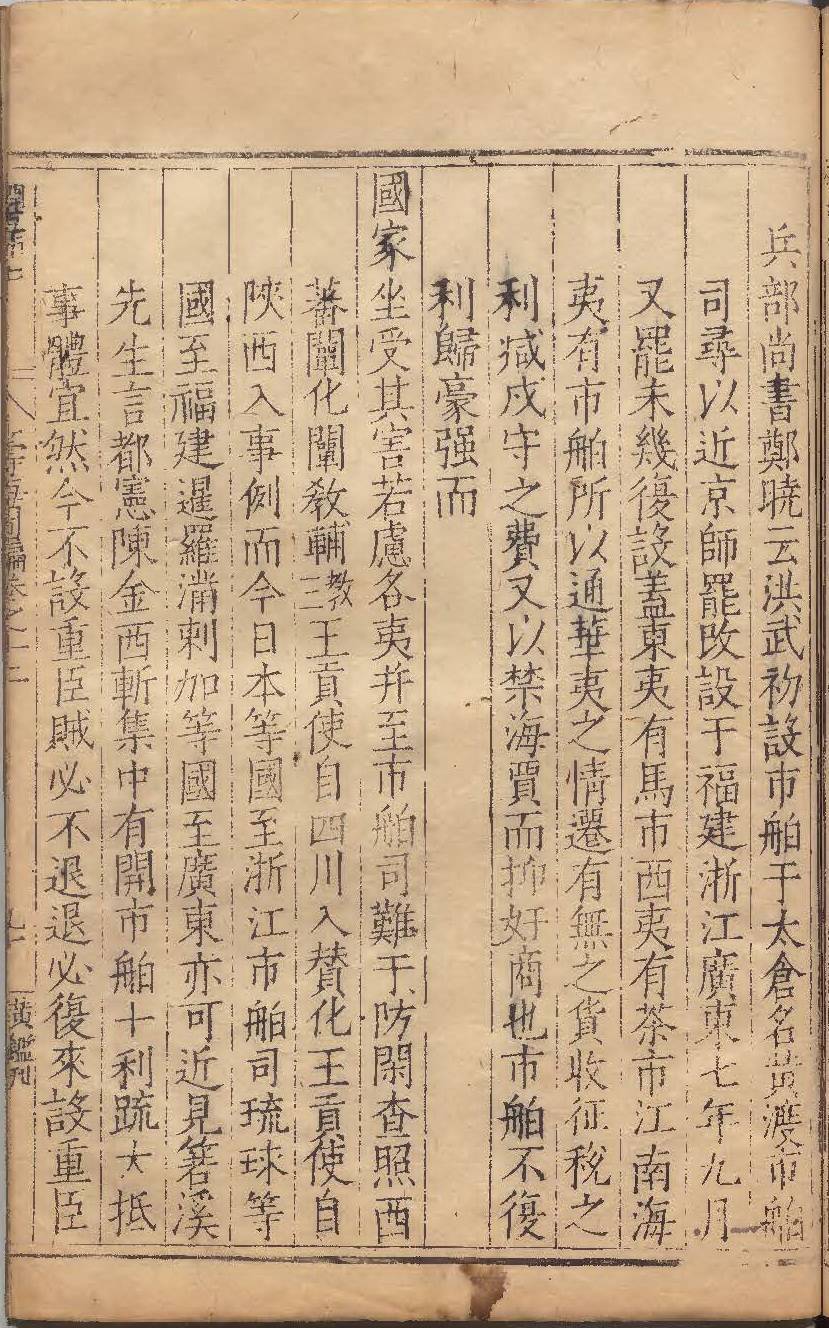 兵部尚書鄭曉云洪武初設市舶于太倉名黄渡市舶
司尋以近京師罷改設于福建浙江廣東七年九月
又罷未幾復設蓋東夷有馬市西夷有茶市江南海
夷有市舶所以通華夷之情遷有無之貨收征稅之
利减戍守之費又以禁海賈而抑奸商也市舶不復
利歸豪强而
國家坐受其害若慮各夷并至市舶司難于防閑查照西
蕃闡化闡敎輔教三王貢使自四川入賛化王貢使自
陜西入事例而今日本等國至浙江市舶司琉球等
國至福建暹羅滿剌加等國至廣東亦可近見箬溪
先生言都憲陳金西斬集中有開市舶十利疏大抵
事體宜然今不設重臣賊必不退退必復來設重臣
籌海圖編卷之十二
黄鑑刊